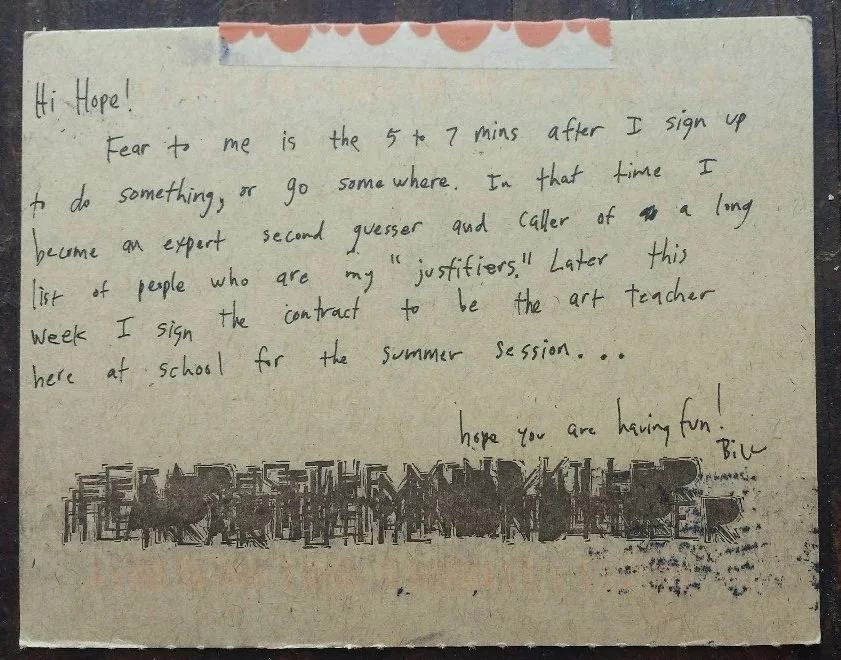 Hi Hope!
Fear to me is the 5 to 7 mins after I sign up
to do something, or go somewhere. In that time I
become an expert second guesser and caller of a long
list of people who are my "justifiers." Later this
week I sign the contract to be the art teacher
here at school for the summer session...
hope you are having fun!
Bill
FEAR IS THE MIND KILLER